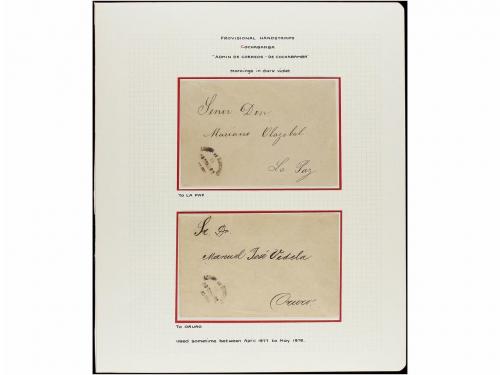 PROVISIONAL HANDSTAMPS
COCHABAMBA
"ADMIN DE CORREOS - DE COCHABAMBA"
Markings in dark violet
Senor Don
Mariano Olazabal
La Paz
TO LA PAZ
Sr Dr.
Manuel José Videla
Oruro
TO ORURO
Used sometime between April 1877 to May 1878.